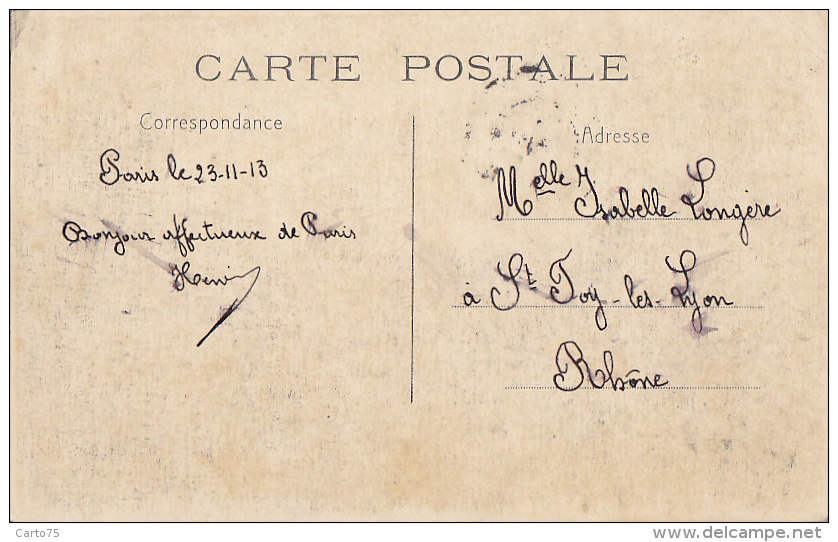 CARTE POSTALE
Correspondance
Paris le 23-11-13
Bonjour affectueux de Paris
Henri
Adresse
Melle Isabelle Longère
à St Foy-les-Lyon
Rhône
Carto75
www.delcampe.net